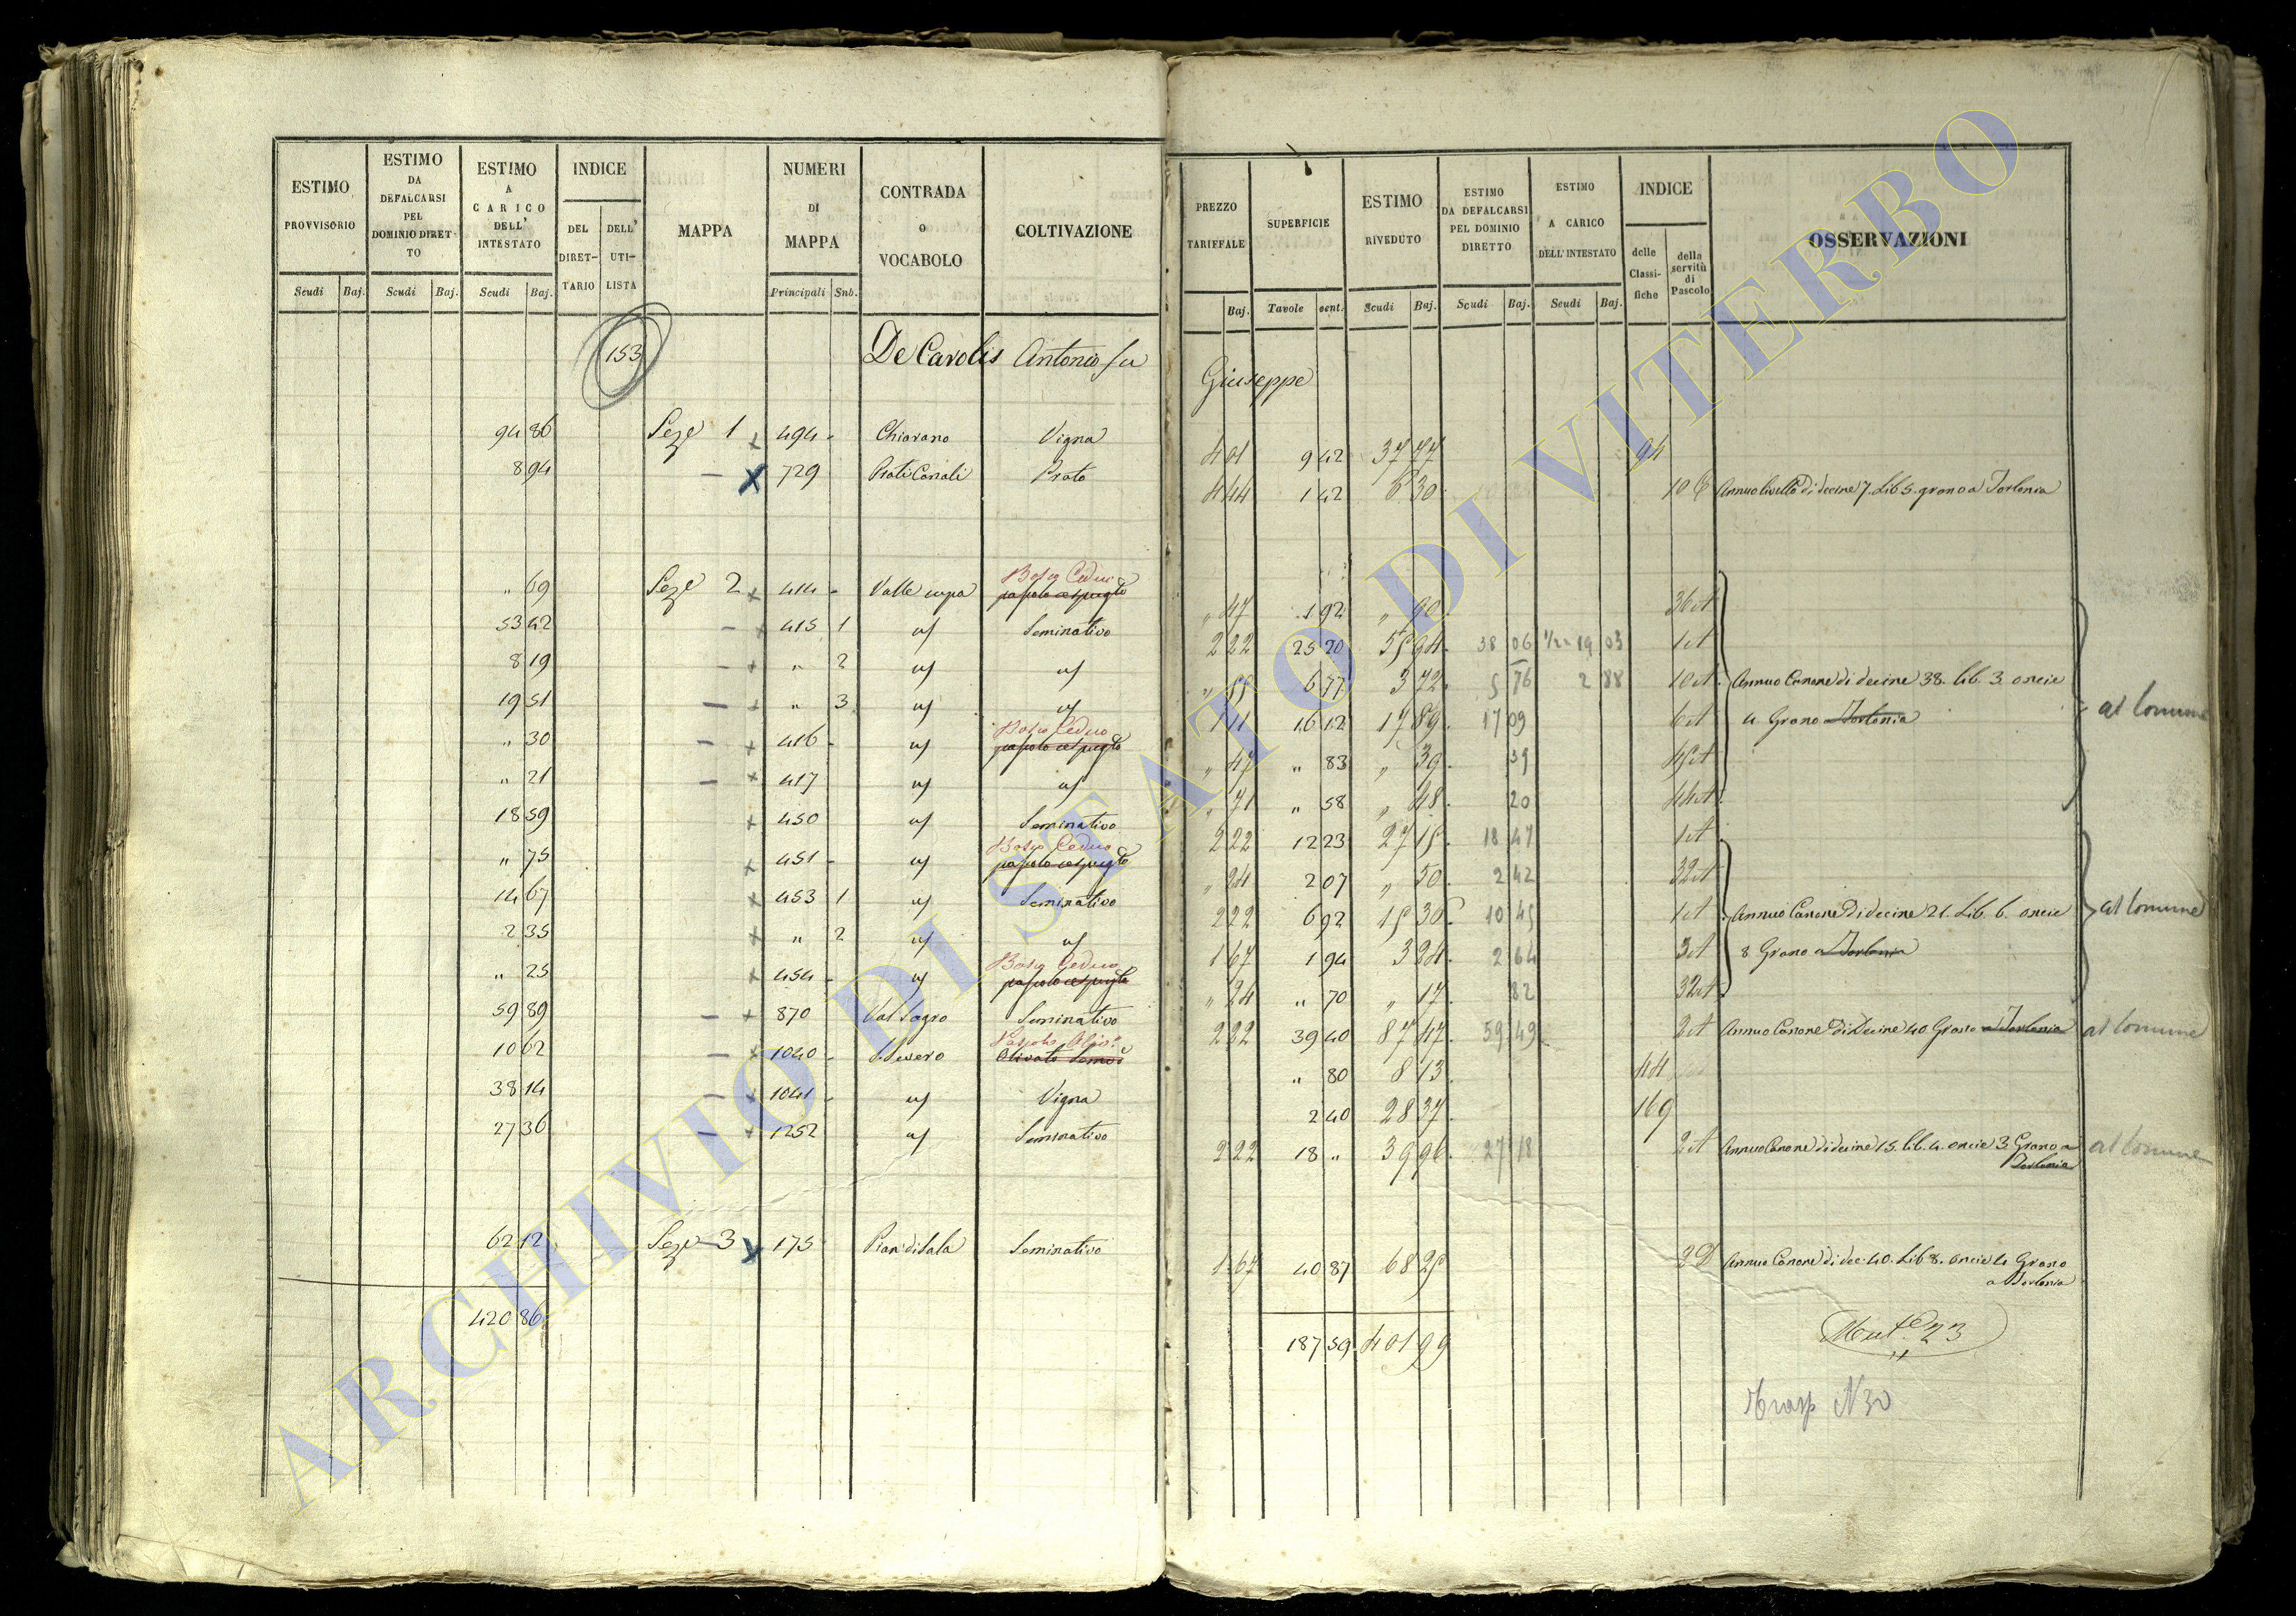 ESTIMO PROVVISORIO Scudi Baj.
ESTIMO DA DEFALCARSI PEL DOMINIO DIRETTO Scudi Baj.
ESTIMO A CARICO DELL' INTESTATO Scudi Baj.
INDICE DEL DIRETTARIO DELL' UTILISTA
MAPPA
NUMERI DI MAPPA Principali Sub.
CONTRADA o VOCABOLO
COLTIVAZIONE
PREZZO TARIFFALE Baj.
SUPERFICIE Tavole cent.
ESTIMO RIVEDUTO Scudi Baj.
ESTIMO DA DEFALCARSI PEL DOMINIO DIRETTO Scudi Baj.
ESTIMO A CARICO DELL' INTESTATO Scudi Baj.
INDICE delle Classifiche della servitù di Pascolo
OSSERVAZIONI
153 De Carolis Antonio fu Giuseppe
94 86 Seze 1 494 Chiorano Vigna 4 01 9 42 37 77 94
8 94 729 Prati Canali Prato 4 44 1 42 6 30 10 Annuo livello di decine 7. Lib 5. grano a Torlonia
" 69 Seze 2 414 Valle cupa Bosco Ceduo " 47 1 92 " 90 36 A
53 42 415 1 Seminativo 2 22 25 20 55 94 38 06 1/2 19 03 1 A
8 19 " 2 " 55 6 77 3 72 5 76 2 88 10 A Annuo Canone di decine 38. lib. 3. oncie
19 51 " 3 1 11 16 12 17 89 17 09 6 A 4 Grano a Torlonia al Comune
" 30 416 Bosco Ceduo " 47 " 83 " 39 39 45 A
" 21 417 " 71 " 58 " 48 20 44 A
18 59 450 Seminativo 2 22 12 23 27 15 18 47 1 A
" 75 451 Bosco Ceduo " 24 2 07 " 50 2 42 32 A
14 67 453 1 Seminativo 2 22 6 92 15 36 10 45 1 A Annuo Canone di decine 21. Lib. 6. oncie al Comune
2 35 " 2 1 67 1 94 3 24 2 64 3 A 8 Grano a Torlonia
" 25 454 Bosco Ceduo " 24 " 70 " 17 82 32 A
59 89 870 Val Sagro Seminativo 2 22 39 40 87 47 59 49 2 A Annuo Canone di Decine 40 Grano a Torlonia al Comune
10 62 1040 Olivato " 80 8 13 44
38 14 1041 Vigna 2 40 28 37 169
27 36 1252 Seminativo 2 22 18 " 39 96 27 18 2 A Annuo Canone di decine 15. lib. 4. oncie 3 Grano a Torlonia al Comune
62 12 Seze 3 175 Pian di Sala Seminativo 1 67 40 87 68 25 2 D Annuo Canone di dec. 40. Lib 8. oncie 4 Grano
a Torlonia
420 86 187 59 401 99
23
Trasp N 30
ARCHIVIO DI STATO DI VITERBO